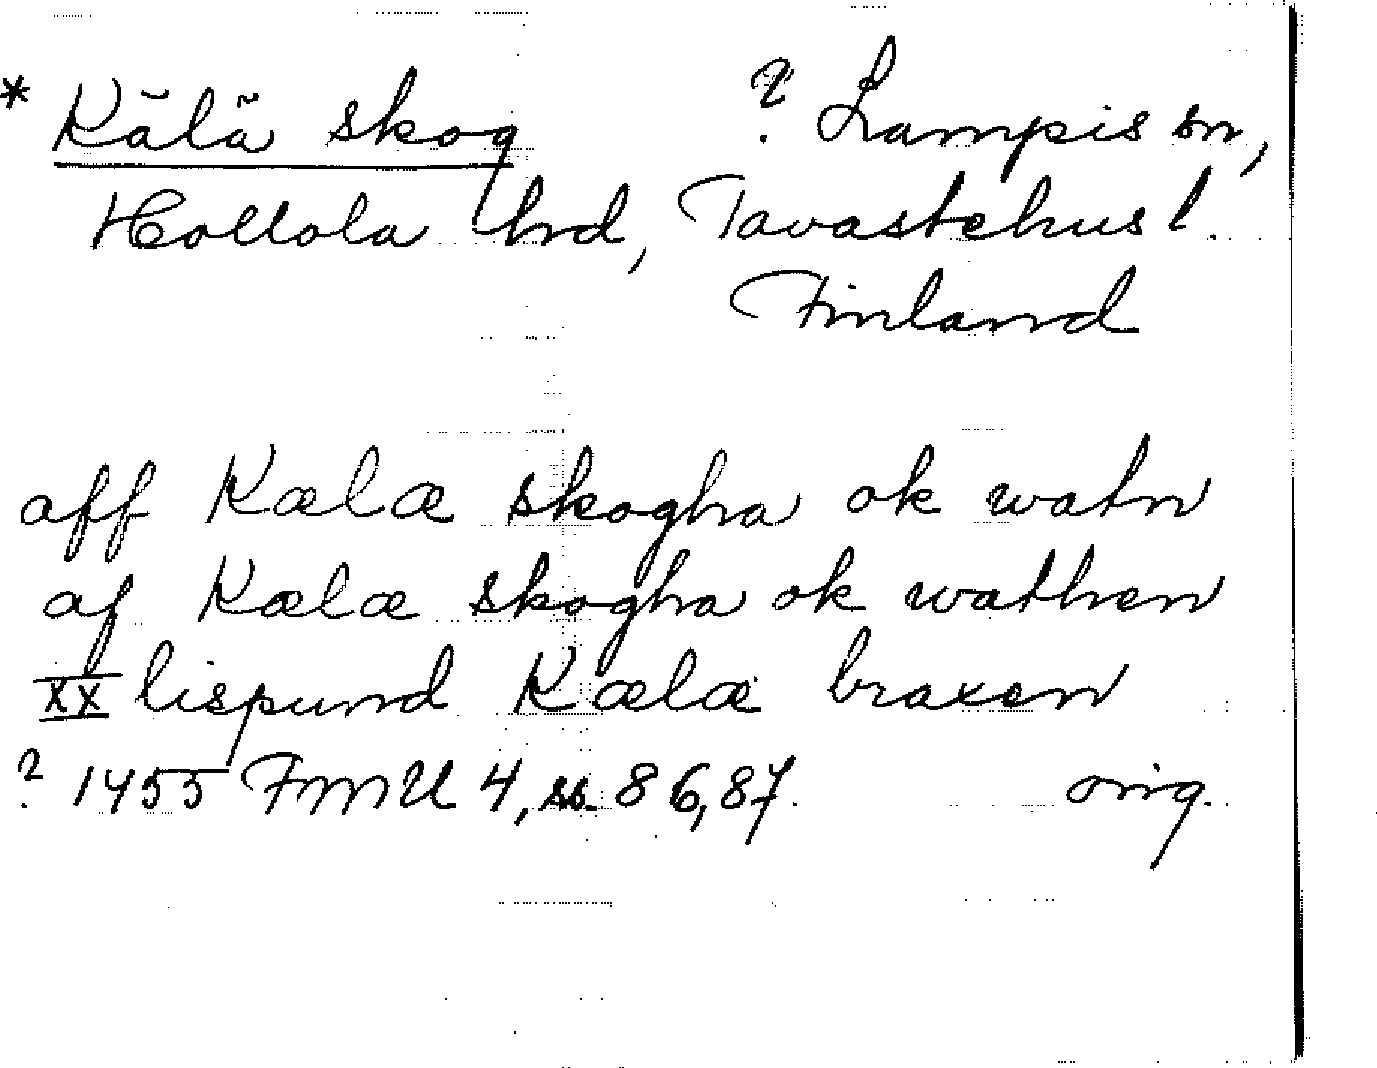 * Kälä skog ? Lampis sn,
Hollola hrd, Tavastehus l.
Finland
aff Kælæ skogha ok watn
af Kælæ skogha ok wathen
XX lispund Kælæ braxen
? 1455 FMU 4, ss. 86, 87. orig.